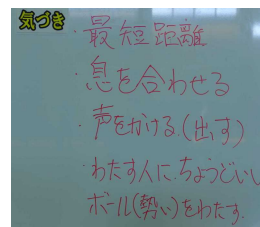 気づき
・最短距離
・息を合わせる
・声をかける.(出す)
・わたす人に、ちょうどいい
ボール(勢い)をわたす.